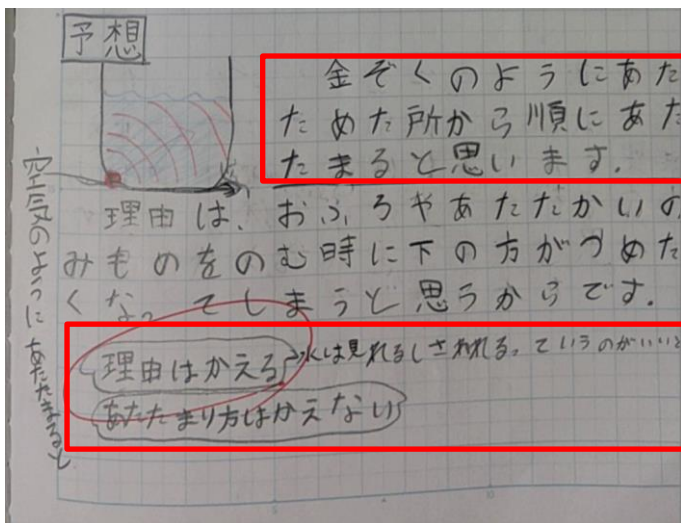 予想
金ぞくのようにあた
ためた所から順にあた
たまると思います。
理由は、おふろやあたたかいの
みものをのむ時に下の方がつめた
くなってしまうと思うからです。
理由はかえる 水は見れるしさわれる。ていうのがいいと
あたたまり方はかえない
空気のようにあたたまると